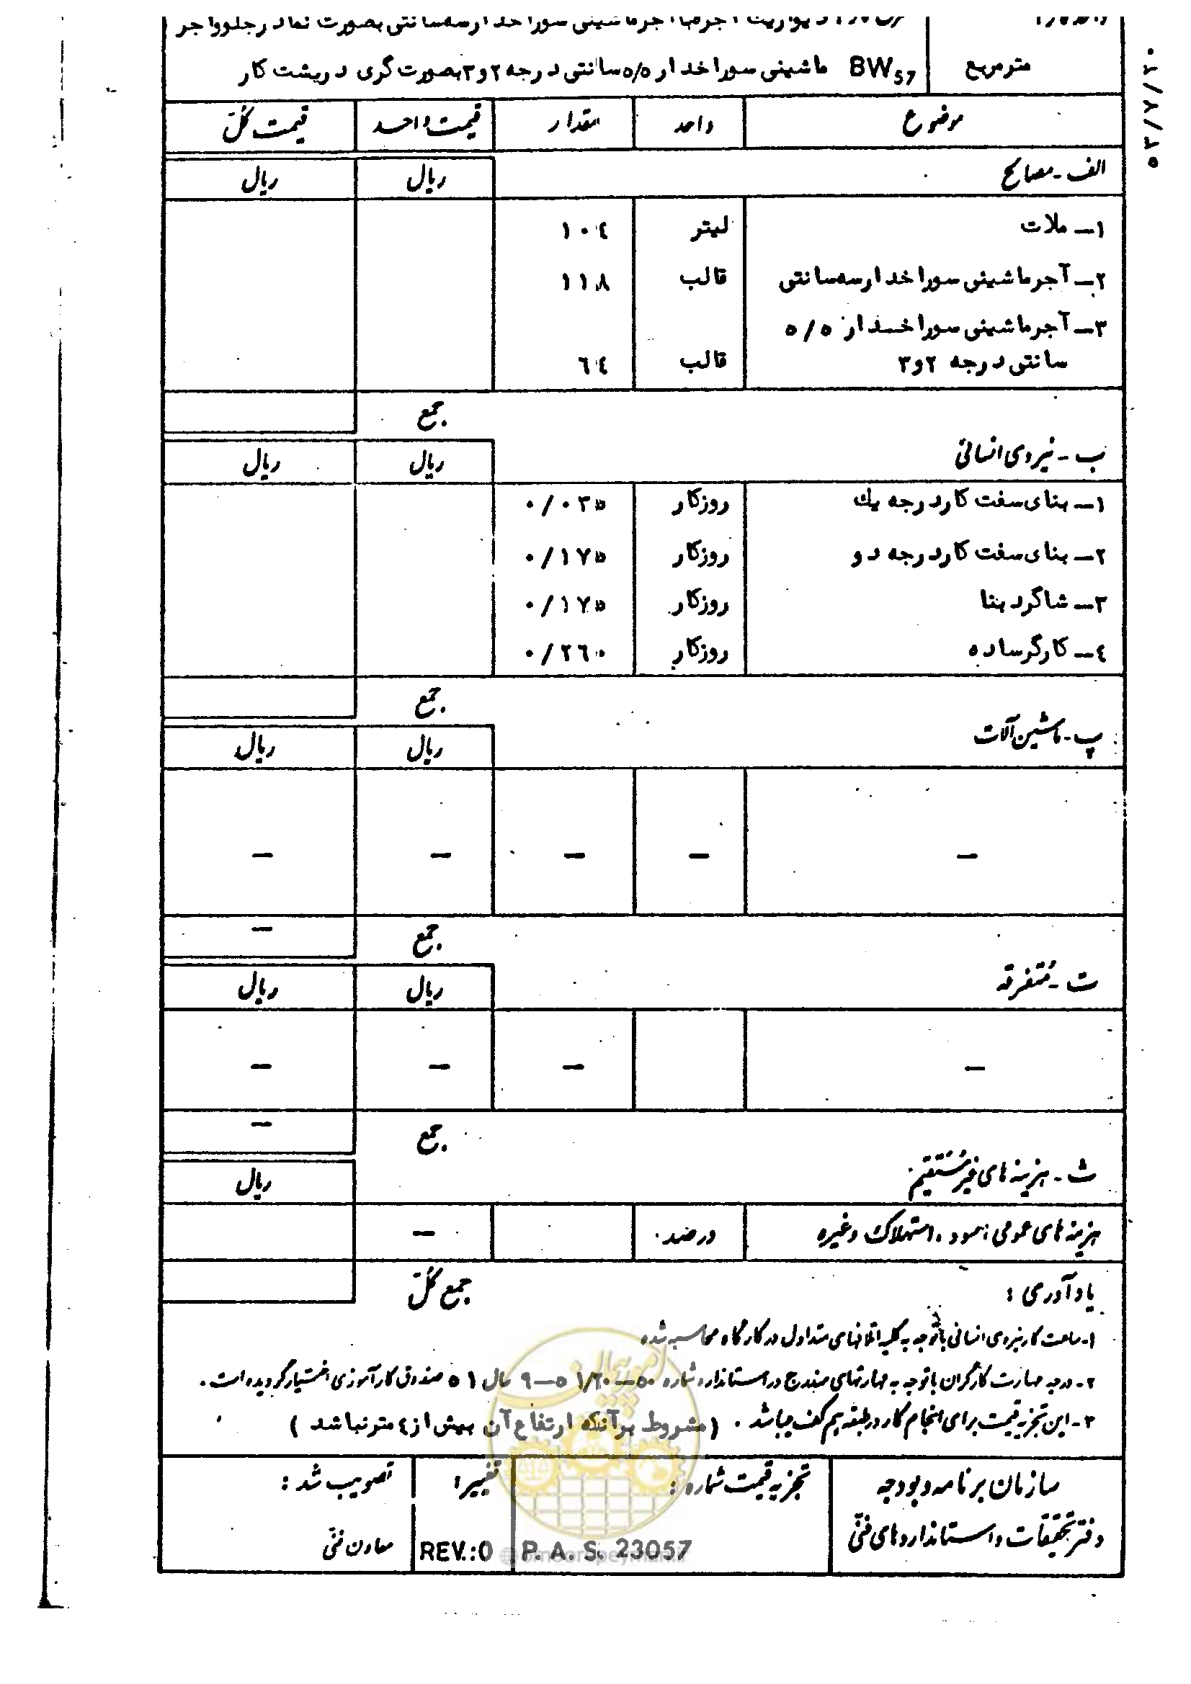 واحد کار: شرح کار: دیوار یک آجره با آجر ماشینی سوراخدار سه سانتی بصورت نما در جلو و آجر
مترمربع BW57 ماشینی سوراخدار ۵/۵ سانتی درجه ۲و۳ بصورت گری در پشت کار
۵۳/۷/۲۰
موضوع واحد مقدار قیمت واحد قیمت کل
الف - مصالح ریال ریال
۱ــ ملات لیتر ۱۰٤
۲ــ آجرماشینی سوراخدارسه‌سانتی قالب ۱۱۸
۳ــ آجرماشینی سوراخدار ۵/۵
سانتی درجه ۲و۳ قالب ٦٤
جمع
ب - نیروی انسانی ریال ریال
۱ــ بنای سفت کار درجه یك روزکار ۰/۰۳۵
۲ــ بنای سفت کار درجه دو روزکار ۰/۱۷۵
۳ــ شاگرد بنا روزکار ۰/۱۷۵
٤ــ کارگر ساده روزکار ۰/۲٦۰
جمع
پ - ماشین‌آلات ریال ریال
— — — — —
جمع —
ت - متفرقه ریال ریال
— — — —
جمع —
ث - هزینه‌های غیر مستقیم ریال
هزینه‌های عمومی، سود، استهلاک وغیره درصد —
یادآوری : جمع کل
۱- ساعت کار نیروی انسانی با توجه به کلیه اتلافهای متداول در کارگاه محاسبه شده
۲- درجه مهارت کارگران با توجه به مهارتهای مندرج در استاندارد شماره ۵۰—۱/٦۰ ۵—۹ سال ۵۱ صندوق کارآموزی اختیار گردیده است .
۳- این تجزیه قیمت برای انجام کار در طبقه هم کف میباشد . (مشروط برآنکه ارتفاع آن بیش از ٤ مترنباشد )
سازمان برنامه و بودجه تجزیه قیمت شماره : تغییر: تصویب شد :
دفتر تحقیقات و استانداردهای فنی P. A. S. 23057 REV.:0 معاون فنی
امور پیمان
omoorepeyman.ir